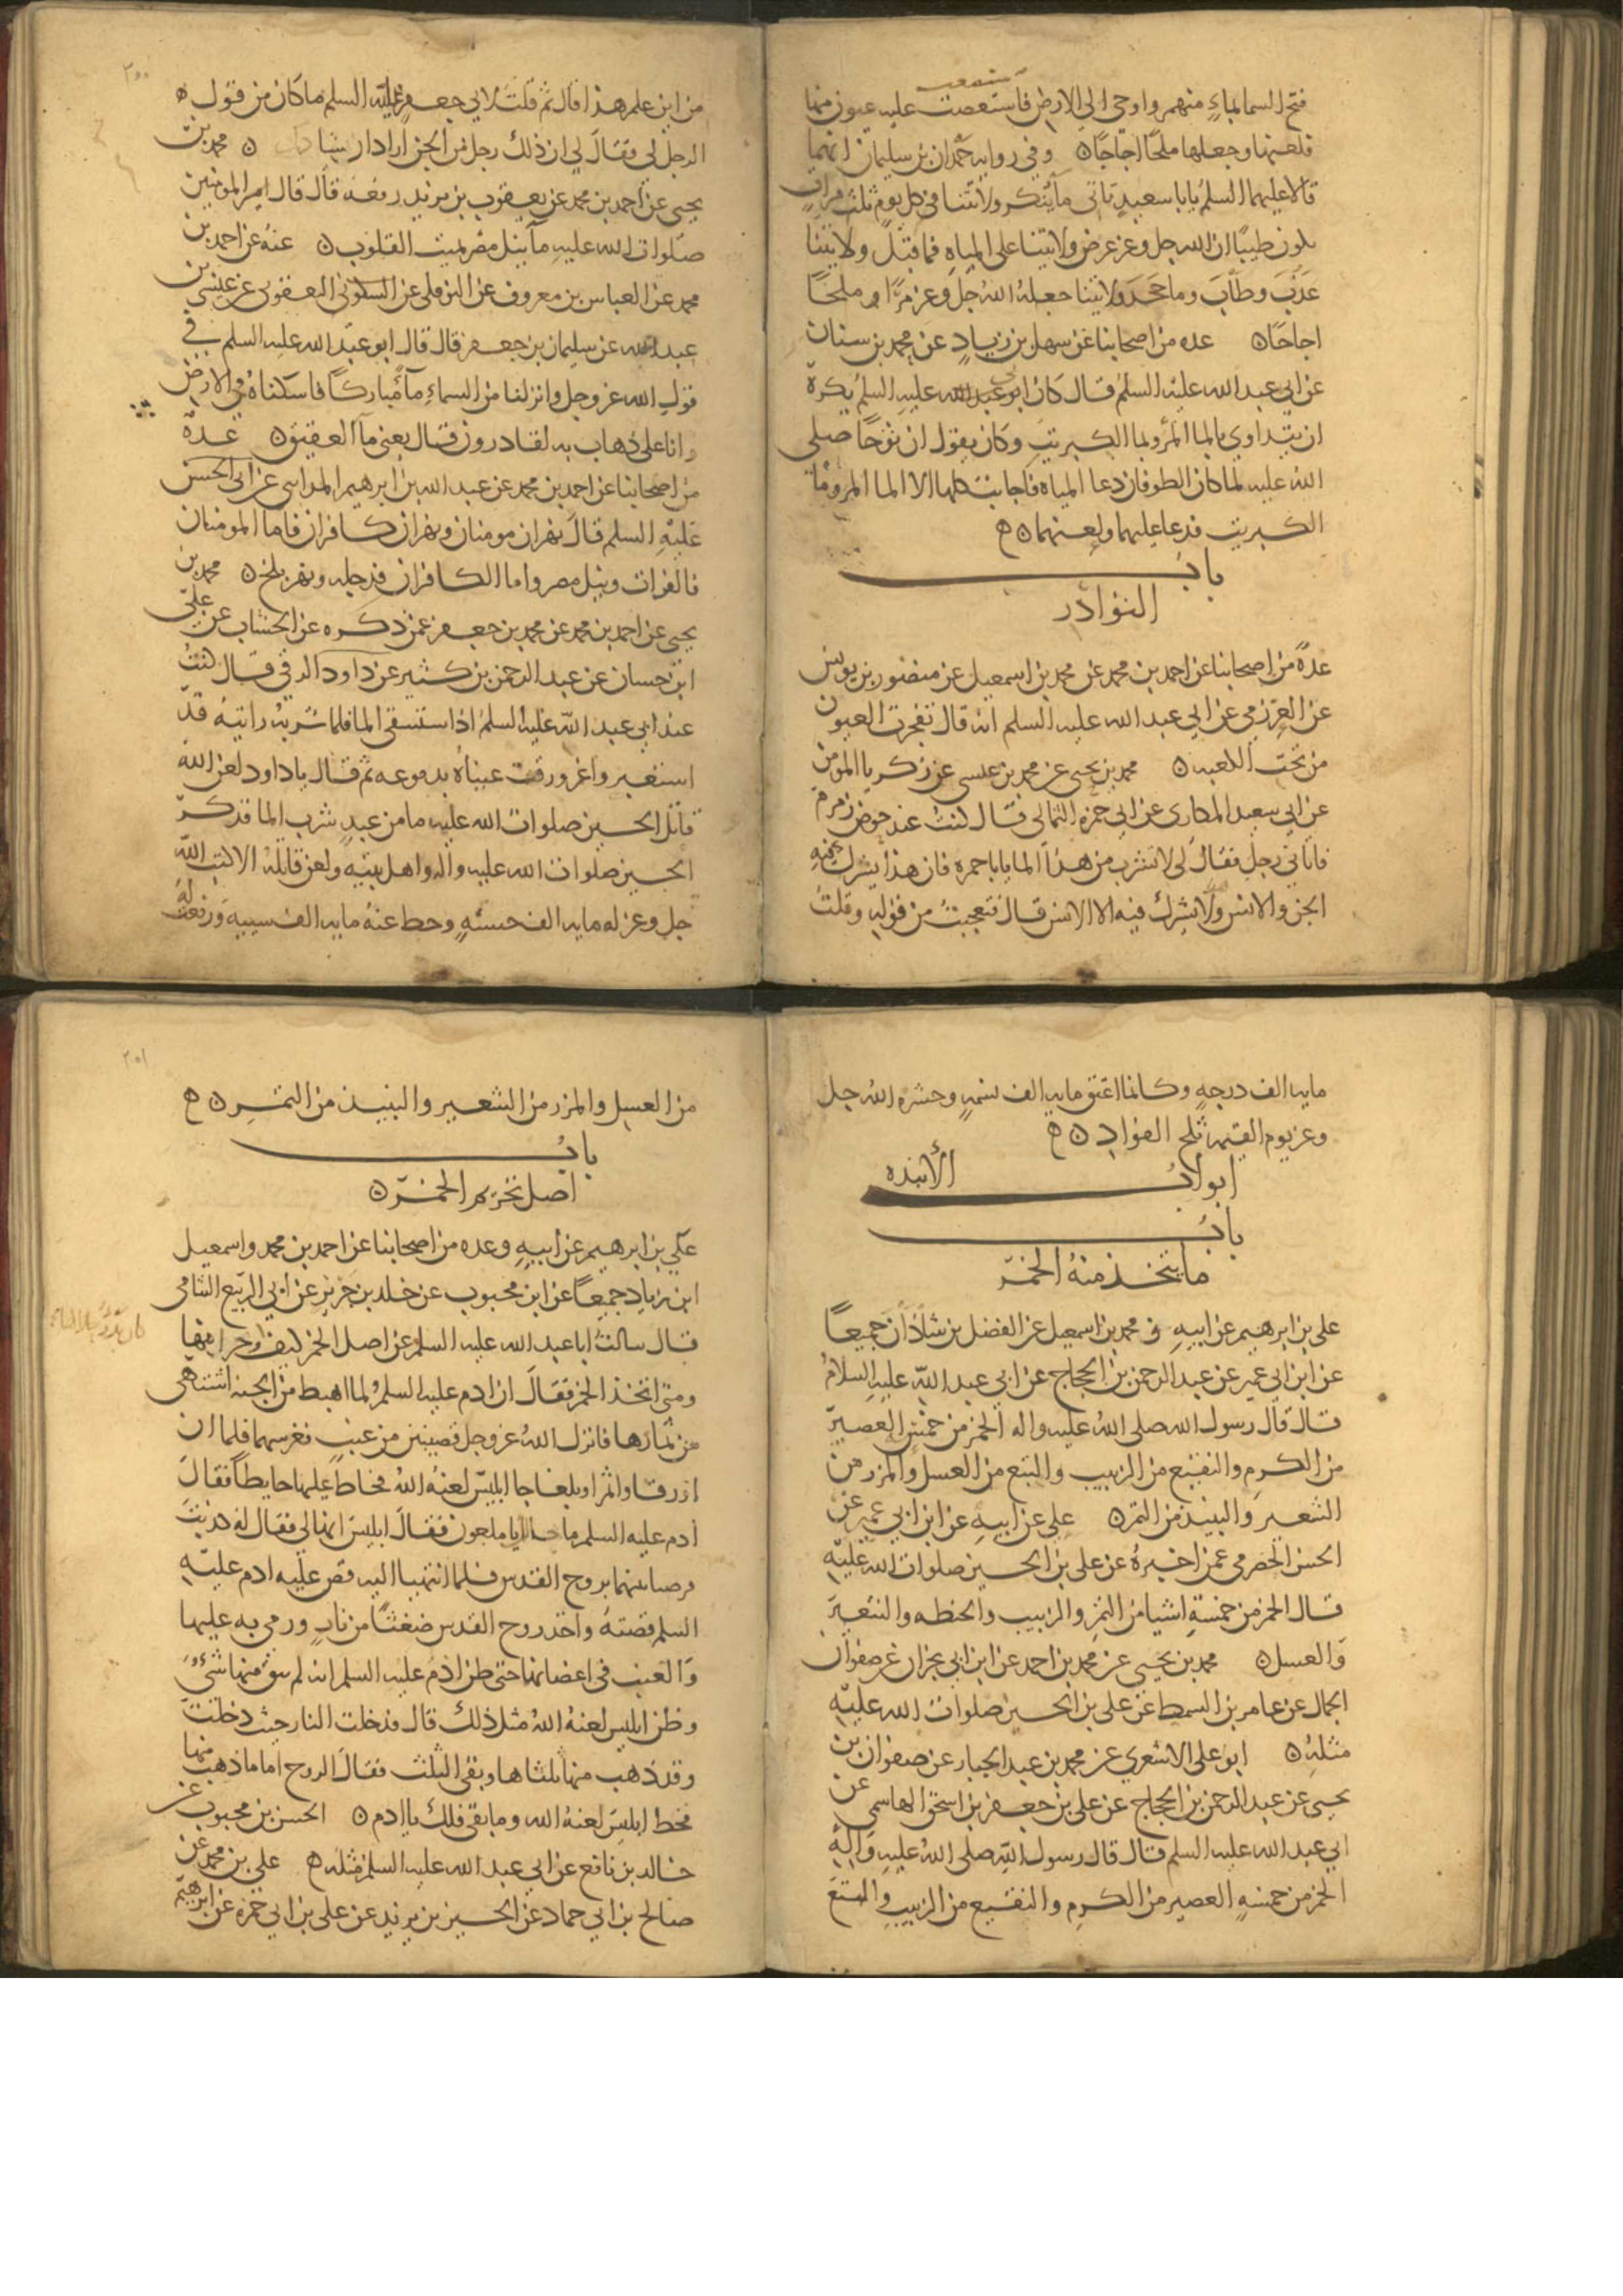 فتح السما بماءٍ منهمر واوحى الى الارض فاستعصت عليه عيون منها
فلعنها وجعلها ملحًا اجاجًا ٥ وفي روايه حمدان بن سليمان انهما
قالا عليهما السلم يابا سعيدٍ تاتى ماً ينكر ولايتنا في كل يوم ثلث مراتٍ
ان الله جل وعز عرض ولايتنا على المياه فما قبل ولايتنا
عذب وطاب وما جحد ولايتنا جعله الله جل وعز مرًا و ملحًا
اجاجًا ٥ عده من اصحابنا عن سهل بن زيادٍ عن محمد بن سنان
عن ابى عبد الله عليه السلم قال كان ابى عليه السلم يكره
ان يتداوي بالما المر وبما الكبريت وكان يقول ان نوحًا صلى
الله عليه لما كان الطوفان دعا المياه فاجابت كلها الا الما المر وماً
الكبريت فدعا عليهما ولعنهما ٥ ه
باب
النوادر
عدة من اصحابنا عن احمد بن محمد عن محمد بن اسمعيل عن منصور بن يونس
عن العرزمي عن ابي عبد الله عليه السلم انه قال تفجرت العيون
من تحت الكعبه ٥ محمد بن يحيى عن محمد بن عيسى عن زكريا المومن
عن ابي سعيد المكارى عن ابي حمزه الثمالى قال كنت عند حوض زمزم
فاتاني رجل فقال لى لا تشرب من هذا الما يابا حمزه فان هذا يشرك فيه
الجن والانس ولا يشرك فيه الا الانس قال فتعجبت من قوله وقلت
٢٠٠
من اين علم هذا قال ثم قلت لابي جعفر عليه السلم ما كان من قول
الرجل لي فقال لي ان ذلك رجل من الجن اراد ارشادك ٥ محمد بن
يحيى عن احمد بن محمد عن يعقوب بن يزيد رفعه قال قال امير المومنين
صلوات الله عليه ماً نيل مصر يميت القلوب ٥ عنه عن احمد بن
محمد عن العباس بن معروف عن النوفلى عن اليعقوبى عن عيسى بن
عبد الله عن سليمان بن جعفر قال قال ابو عبد الله عليه السلم في
قول الله عز وجل وانزلنا من السماءِ ماً مباركًا فاسكناه في الارض
وانا على ذهاب به لقادرون قال يعنى ماً العقيق ٥ عدة
من اصحابنا عن احمد بن محمد عن عبد الله بن ابرهيم المداينى عن ابى الحسن
عليه السلم قال نهران مومنان ونهران كافران فاما المومنان
فالفرات ونيل مصر واما الكافران فدجله ونهر بلخ ٥ محمد بن
يحيى عن احمد بن محمد عن محمد بن جعفر عمن ذكره عن الخشاب عن على
ابن حسان عن عبد الرحمن بن كثير عن داود الرقي قال كنت
عند ابي عبد الله عليه السلم اذا استسقى الما فلما شربه رايته قد
استعبر واغرورقت عيناه بدموعه ثم قال يا داود لعن الله
قاتل الحسين صلوات الله عليه ما من عبدٍ شرب الما فذكر
الحسين صلوات الله عليه واله واهل بيته ولعن قاتله الا كتب الله
جل وعز له مايه الف حسنه وحط عنه مايه الف سييه ورفع له
مايه الف درجه وكانما اعتق مايه الف نسمه وحشره الله جل
وعز يوم القيمه ثلج الفواد ٥ ه
ابواب الأنبذه
باب
ما يتخذ منه الخمر
على بن ابرهيم عن ابيهِ و محمد بن اسمعيل عن الفضل بن شاذان جميعًا
عن ابن ابي عمير عن عبد الرحمن بن الحجاج عن ابي عبد الله عليه السلام
قال قال رسول الله صلى الله عليه واله الخمر من خمس العصير
من الكرم والنقيع من الزبيب والبتع من العسل والمزر من
الشعير والنبيذ من التمر ٥ على عن ابيهِ عن ابن ابي عمير عن
الحسن الحضرمي عمن اخبره عن على بن الحسين صلوات الله عليه
قال الخمر من خمسةِ اشيا من التمر والزبيب والحنطه والشعير
والعسل ٥ محمد بن يحيى عن محمد بن احمد عن ابن ابي نجران عن صفوان
الجمال عن عامر بن السمط عن على بن الحسين صلوات الله عليه
مثله ٥ ابو على الاشعري عن محمد بن عبد الجبار عن صفوان بن
يحيى عن عبد الرحمن بن الحجاج عن على بن جعفر بن اسحق الهاشمي عن
ابي عبد الله عليه السلم قال قال رسول الله صلى الله عليه واله
الخمر من خمسه العصير من الكرم والنقيع من الزبيب والبتع
٢٠١
من العسل والمزر من الشعير والنبيذ من التمر ٥ ه
باب
اصل تحريم الخمر ٥
علي بن ابرهيم عن ابيهِ وعده من اصحابنا عن احمد بن محمد واسمعيل
ابن زيادٍ جميعًا عن ابن محبوب عن خلد بن جرير عن ابي الربيع الشامى
قال سالت ابا عبد الله عليه السلم عن اصل الخمر كيف منها
ومتى اتخذ الخمر فقال ان ادم عليه السلم لما اهبط من الجنه اشتهى
من ثمارها فانزل الله عز وجل قضيبين من عنب فغرسهما فلما ان
اورقا واثمرا وبلغا جا ابليس لعنه الله فحاط عليها حايطاً فقال
ادم عليه السلم ما يا ملعون فقال ابليس انها لي فقال له كذبت
فرضيا بينهما بروح القدس فلما انتهيا اليه قص عليه ادم عليه
السلم قصته واخذ روح القدس ضغثًا من نارٍ ورمى به عليها
والعنب في اغصانها حتى ظن ادم عليه السلم انه لم يبق منها شىءٌ
وظن ابليس لعنه الله مثل ذلك قال فدخلت النار حيث دخلت
وقد ذهب منها ثلثاها وبقي الثلث فقال الروح اما ما ذهب منها
فحظ ابليس لعنه الله وما بقي فلك يا ادم ٥ الحسن بن محبوب عن
خالد بن نافع عن ابي عبد الله عليه السلم مثله ه علي بن محمد عن
صالح بن ابي حماد عن الحسين بن يزيد عن على بن ابي حمزه عن ابرهيم